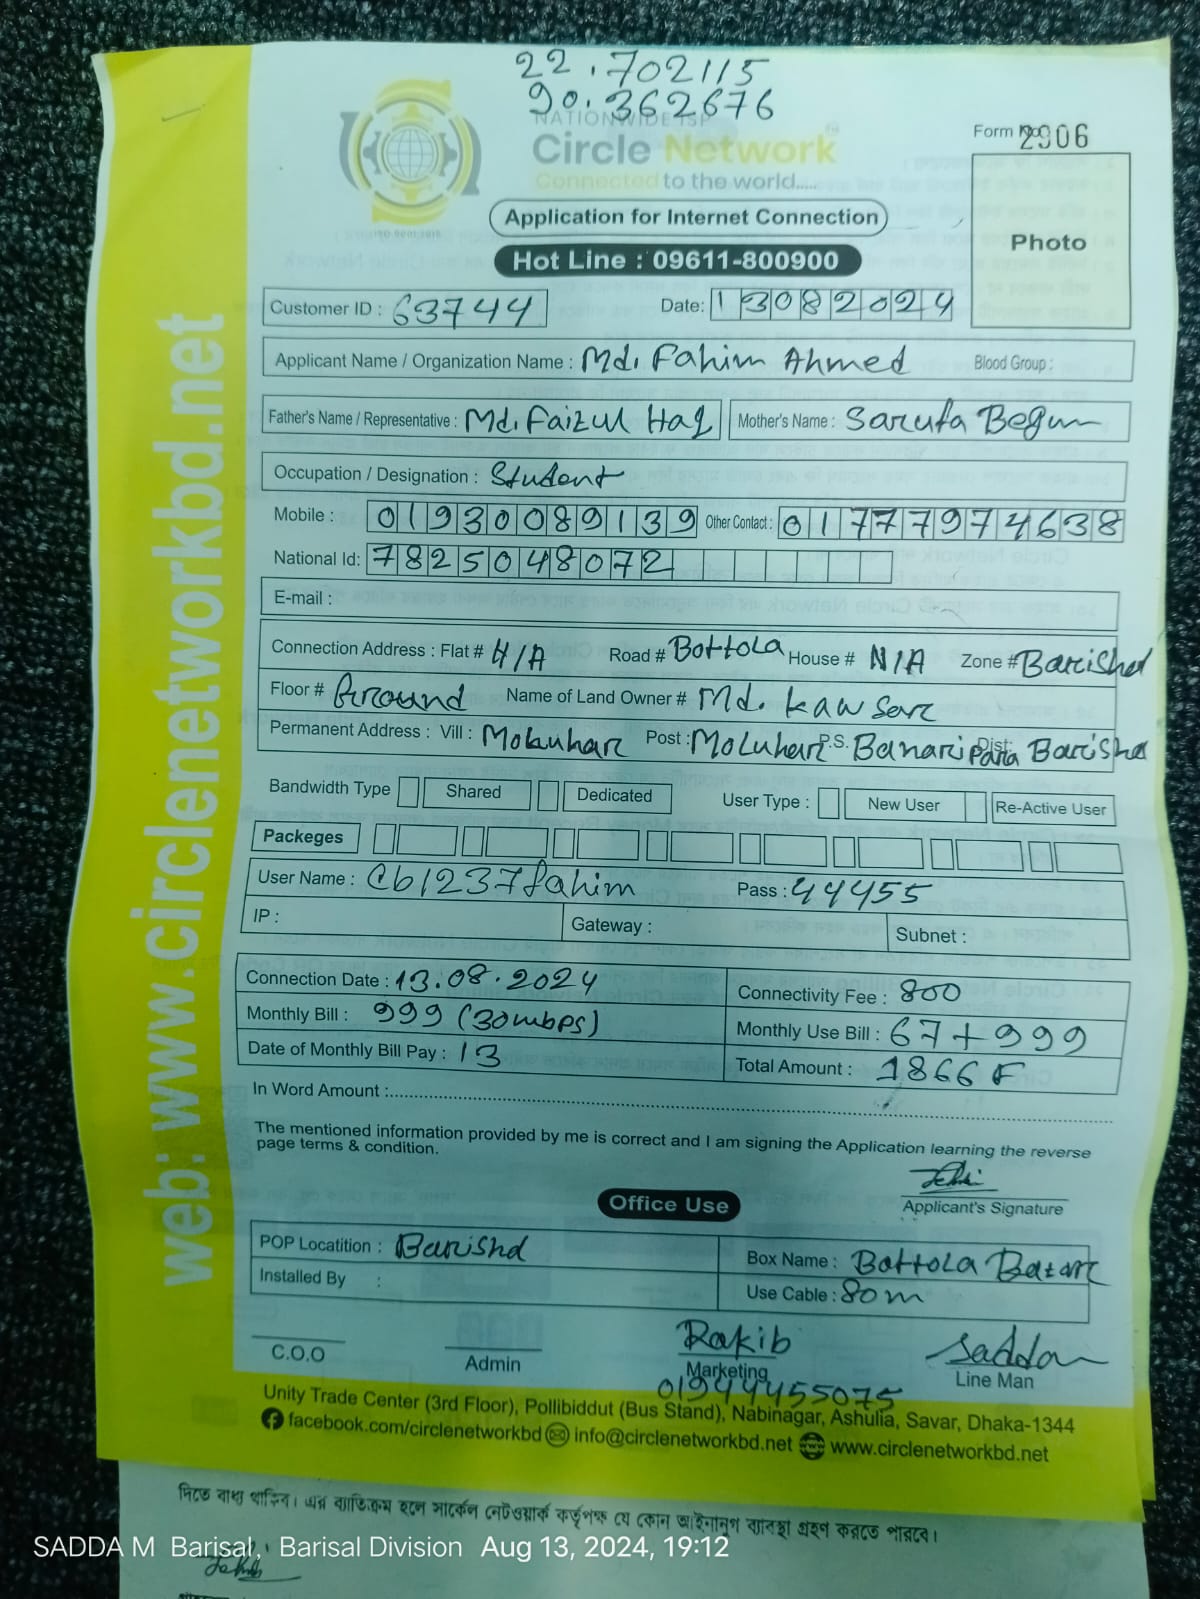 22.702115
90.362676
NATIONWIDE ISP
Circle Network
Connected to the world.....
Form No. 2906
Photo
Application for Internet Connection
Hot Line : 09611-800900
Customer ID : 63744 Date: 13082024
Applicant Name / Organization Name : Md. Fahim Ahmed Blood Group :
Father's Name / Representative : Md. Faizul Haq Mother's Name : Sarufa Begum
Occupation / Designation : Student
Mobile : 01930089139 Other Contact : 01777974638
National Id: 7825048072
E-mail :
Connection Address : Flat # H/A Road # Bottola House # N/A Zone # Barishal
Floor # Ground Name of Land Owner # Md. Kawsar
Permanent Address : Vill : Molluhar Post : Moluhar P.S. Banaripara Dist: Barishal
Bandwidth Type Shared Dedicated User Type : New User Re-Active User
Packeges
User Name : Cb1237fahim Pass : 44455
IP : Gateway : Subnet :
Connection Date : 13.08.2024 Connectivity Fee : 800
Monthly Bill : 999 (30mbps) Monthly Use Bill : 67+999
Date of Monthly Bill Pay : 13 Total Amount : 1866
In Word Amount :
The mentioned information provided by me is correct and I am signing the Application learning the reverse
page terms & condition.
Applicant's Signature
Office Use
POP Locatition : Barishal Box Name : Bottola Bazar
Installed By : Use Cable : 80m
Rakib Saddam
C.O.O Admin Marketing Line Man
01944455075
Unity Trade Center (3rd Floor), Pollibiddut (Bus Stand), Nabinagar, Ashulia, Savar, Dhaka-1344
facebook.com/circlenetworkbd info@circlenetworkbd.net www.circlenetworkbd.net
web: www.circlenetworkbd.net
দিতে বাধ্য থাকিব। এর ব্যতিক্রম হলে সার্কেল নেটওয়ার্ক কর্তৃপক্ষ যে কোন আইনানুগ ব্যবস্থা গ্রহণ করতে পারবে।
SADDA M Barisal, Barisal Division Aug 13, 2024, 19:12